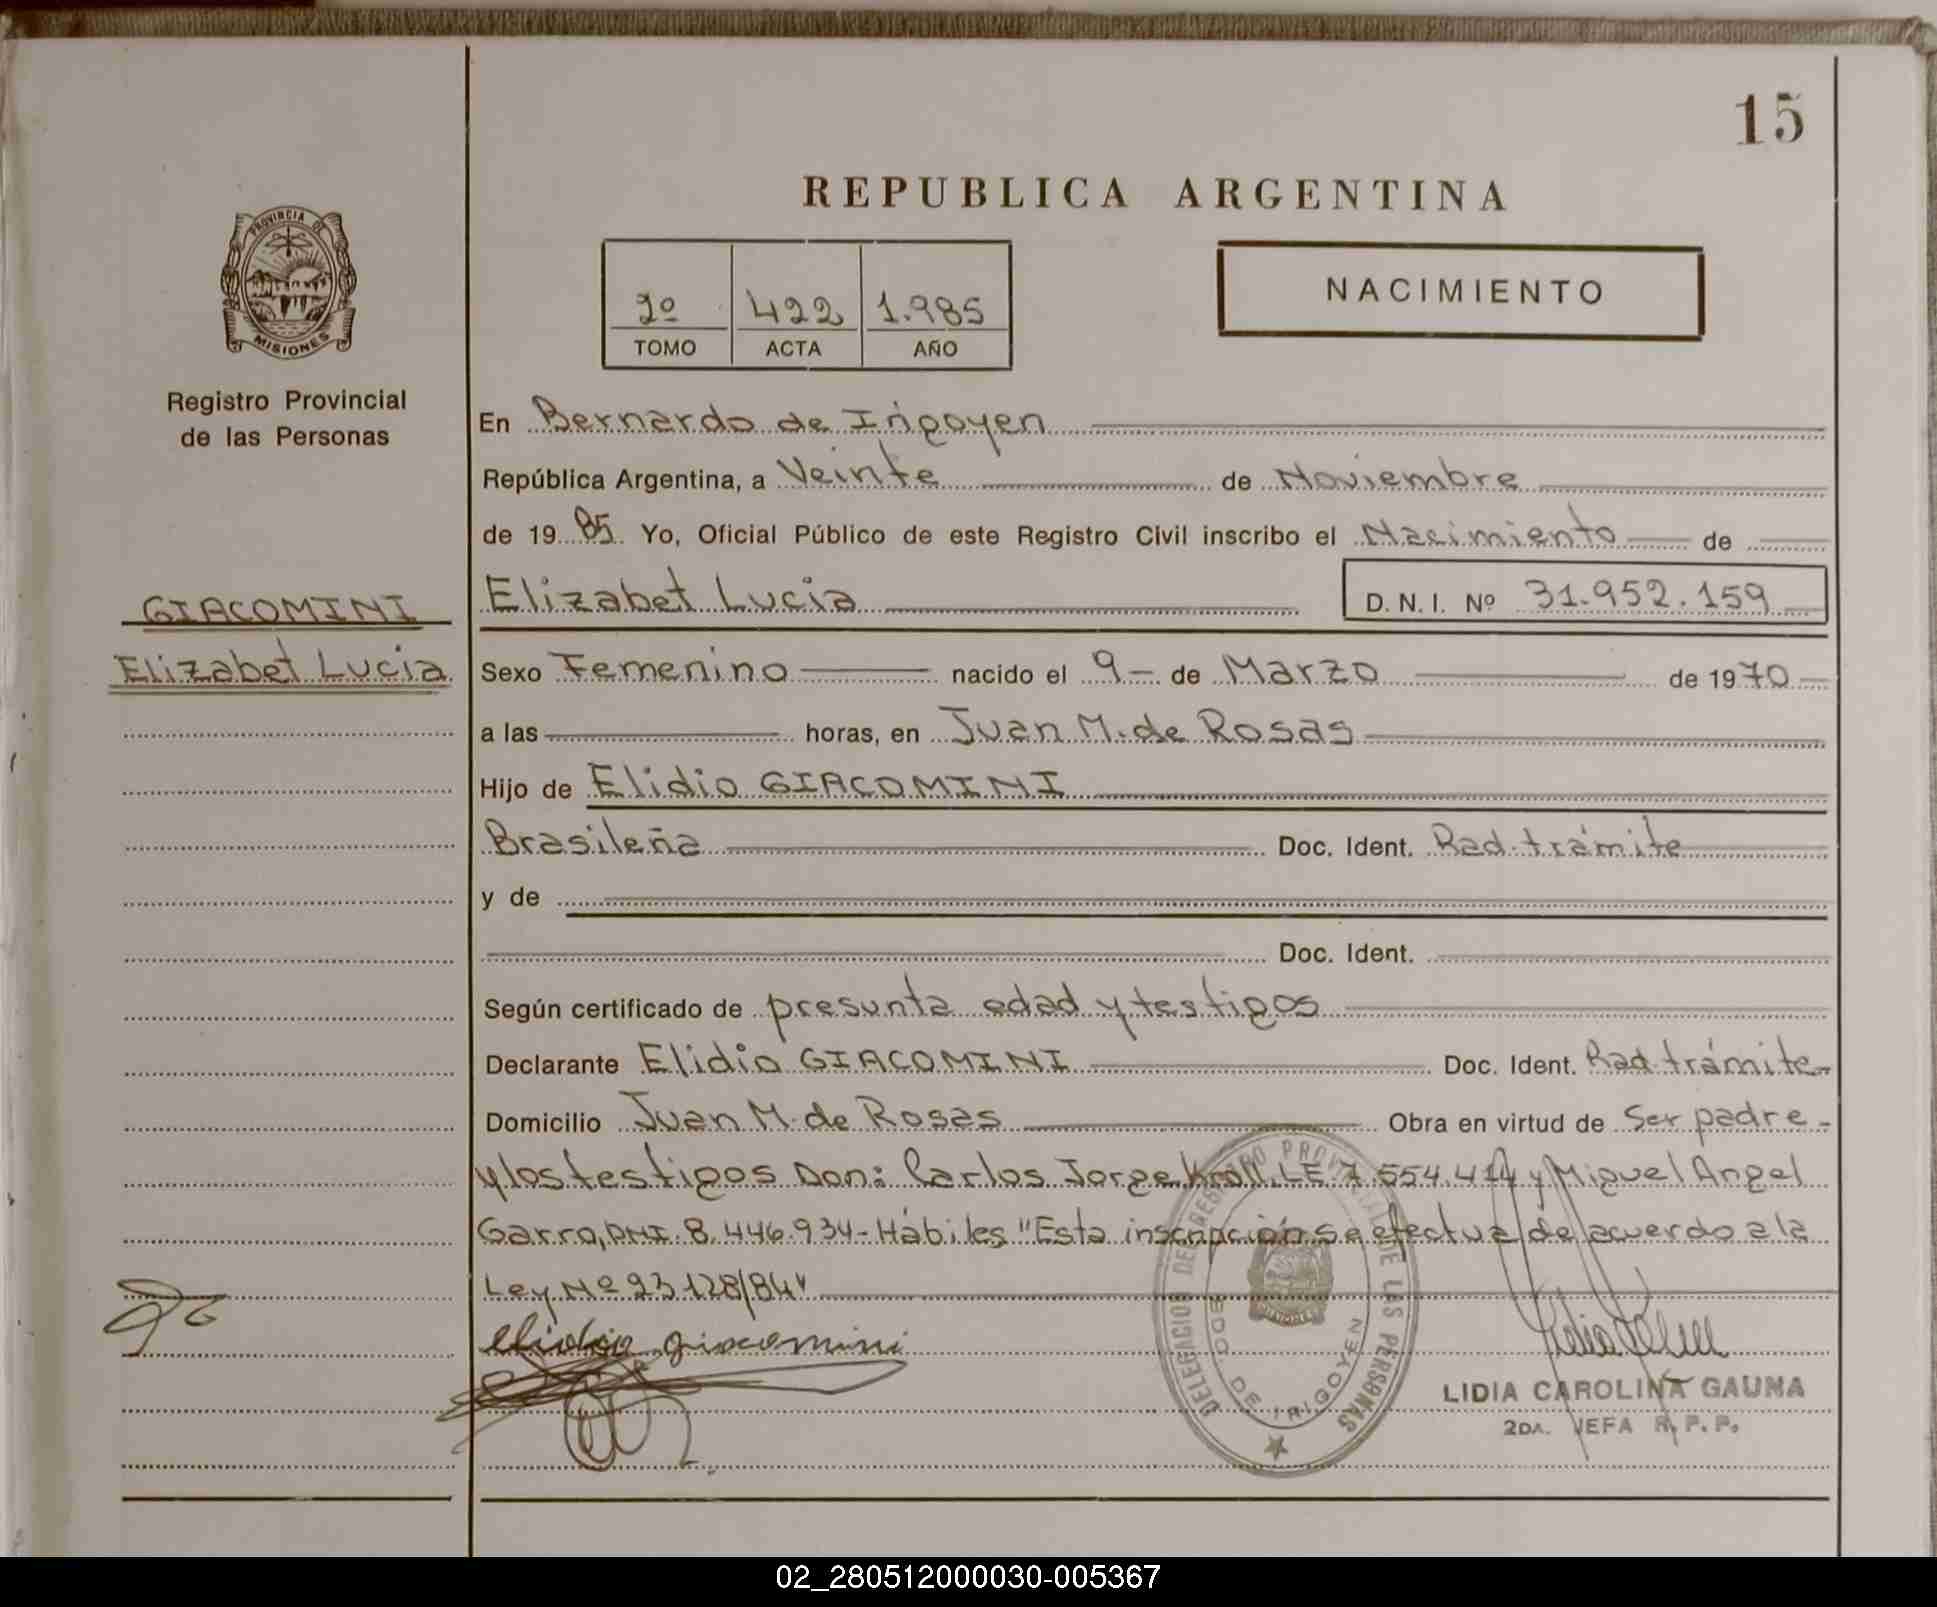 15
REPUBLICA ARGENTINA
PROVINCIA DE
MISIONES
Registro Provincial
de las Personas
2º 422 1.985
TOMO ACTA AÑO
NACIMIENTO
En Bernardo de Irigoyen
República Argentina, a Veinte de Noviembre
de 19 85 Yo, Oficial Público de este Registro Civil inscribo el Nacimiento de
GIACOMINI
Elizabet Lucia
Elizabet Lucia D. N. I. Nº 31.952.159
Sexo Femenino nacido el 9 de Marzo de 1970
a las horas, en Juan M. de Rosas
Hijo de Elidio GIACOMINI
Brasileña Doc. Ident. Rad. trámite
y de
Doc. Ident.
Según certificado de presunta edad y testigos
Declarante Elidio GIACOMINI Doc. Ident. Rad. trámite
Domicilio Juan M. de Rosas Obra en virtud de Ser padre
y los testigos Don: Carlos Jorge Kroll, LE. 7.554.414 y Miguel Angel
Garro, DNI. 8.446.934- Hábiles "Esta inscripción se efectua de acuerdo a la
Ley Nº 23.128/84"
elidio giacomini
DELEGACION DEL REGISTRO PROVINCIAL DE LAS PERSONAS
BDO. DE IRIGOYEN
LIDIA CAROLINA GAUNA
2DA. JEFA R. P. P.
02_280512000030-005367